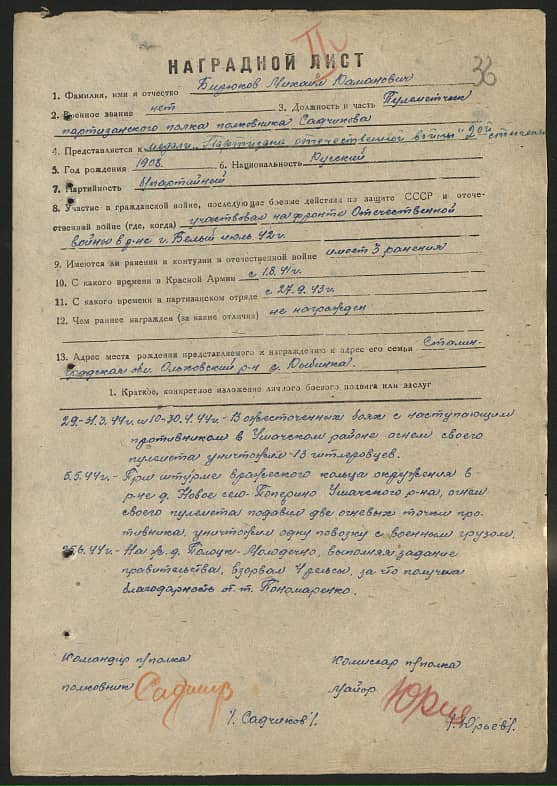 IV
36
НАГРАДНОЙ ЛИСТ
1. Фамилия, имя и отчество Бирюков Михаил Романович
2. Военное звание нет 3. Должность и часть Пулеметчик
партизанского полка полковника Садчикова
4. Представляется к медали „Партизана отечественной войны" 2ой степени
5. Год рождения 1908. 6. Национальность Русский
7. Партийность б/партийный
8. Участие в гражданской войне, последующие боевые действия по защите СССР и отече-
ственной войне (где, когда) участвовал на фронте Отечественной
войны в р-не г. Белый июль 42 г.
9. Имеются ли ранения и контузии в отечественной войне имеет 3 ранения
10. С какого времени в Красной Армии с 1.8.41г.
11. С какого времени в партизанском отряде с 27.9.43г.
12. Чем раннее награжден (за какие отличия) не награжден
13. Адрес места рождения представляемого к награждению и адрес его семьи Сталин-
градская обл. Ольховский р-н с.
1. Краткое, конкретное изложение личного боевого подвига или заслуг
29.-31.3.44г. и 10-30.4.44г.- В ожесточенных боях с наступающим
противником в Ушачском районе огнем своего
пулемета уничтожил 13 гитлеровцев.
5.5.44г.- При штурме вражеского кольца окружения в
р-не д. Новое село-Паперино Ушачского р-на, огнем
своего пулемета подавил две огневых точки про-
тивника, уничтожил одну повозку с военным грузом.
6.44г.- На ж.д. Полоцк-Молодечно, выполняя задание
правительства, взорвал 4 рельсы, за что получил
благодарность от т. Пономаренко.
Командир п/полка
полковник Садчик
/. Садчиков/.
Комиссар п/полка
майор Юрье
/. Юрьев/.